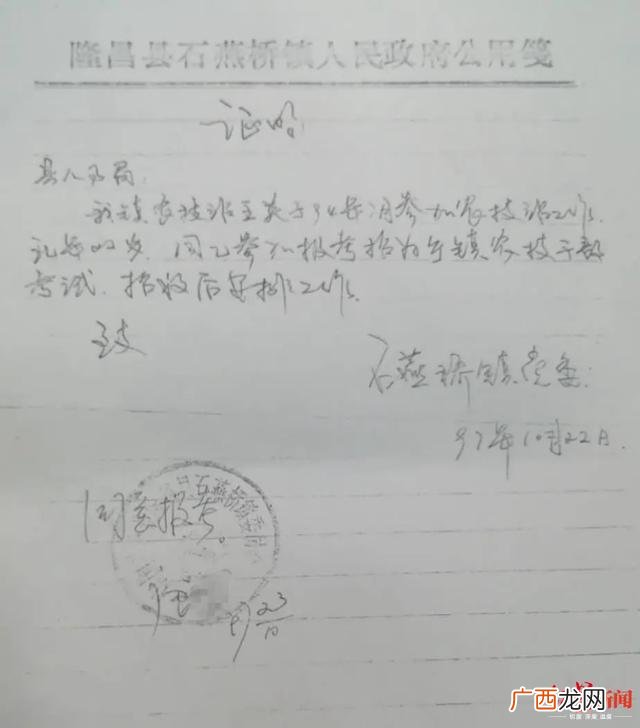 隆昌县石燕桥镇人民政府公用笺
证明
县人事局:
我镇农技站 于94年 月参加农技站工作。
同意参加报考招为乡镇农技干部
考试。招收后安排工作。
致
石燕桥镇党委:
97年10月22日.
同意报考。
石燕桥镇委
23/10
新闻
广西龙网